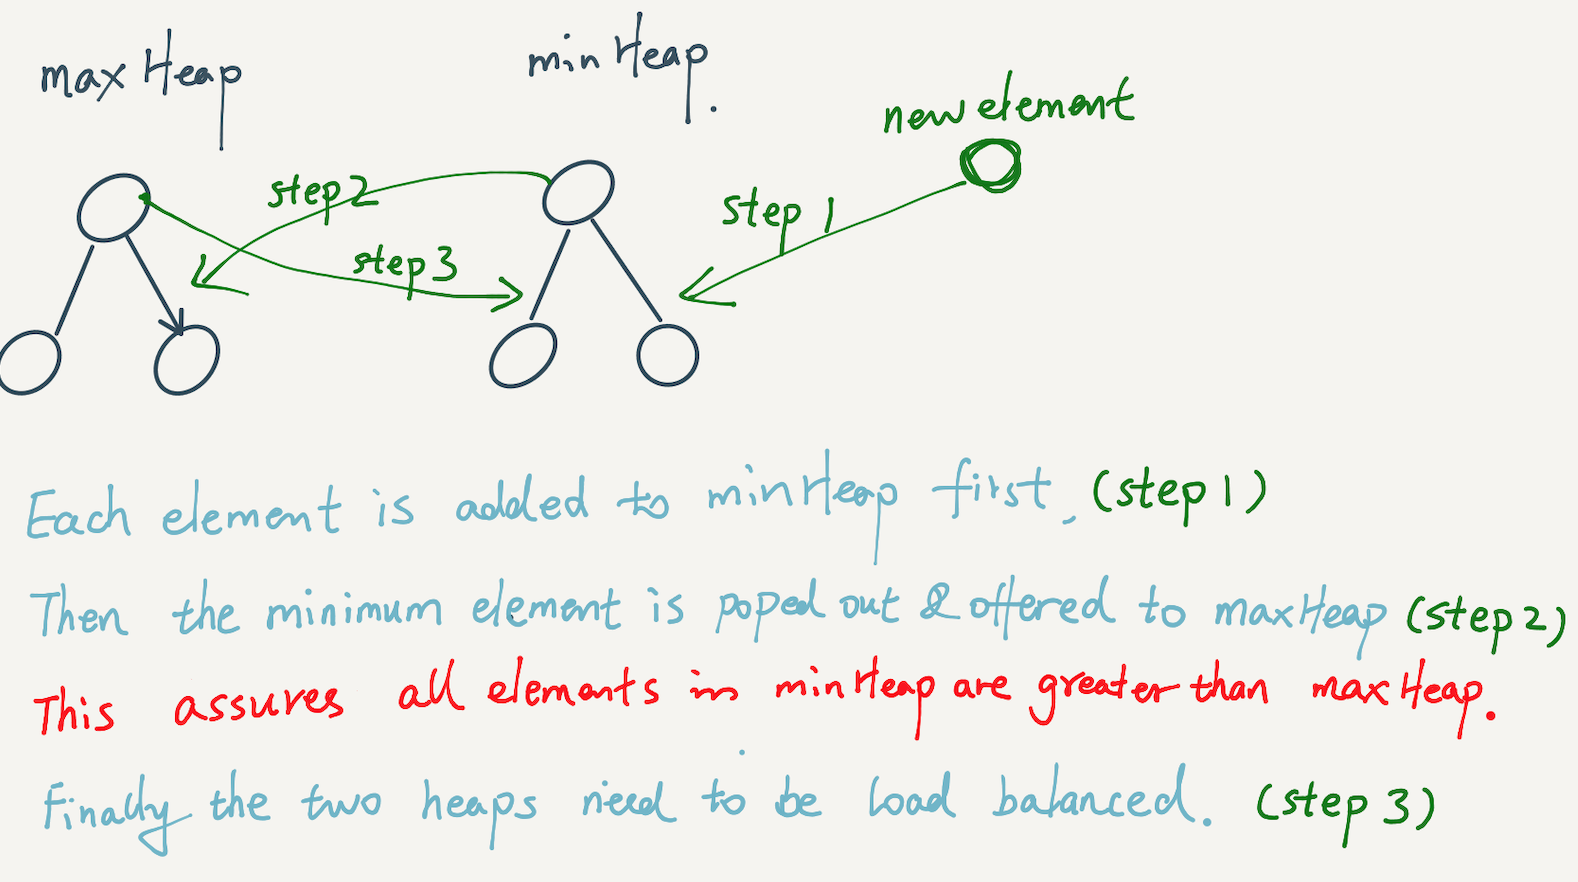 max Heap
min Heap.
new element
step 2
step 1
step 3
Each element is added to minHeap first, (step 1)
Then the minimum element is poped out & offered to maxHeap (step 2)
This assures all elements in minHeap are greater than maxHeap.
Finally the two heaps need to be load balanced. (step 3)